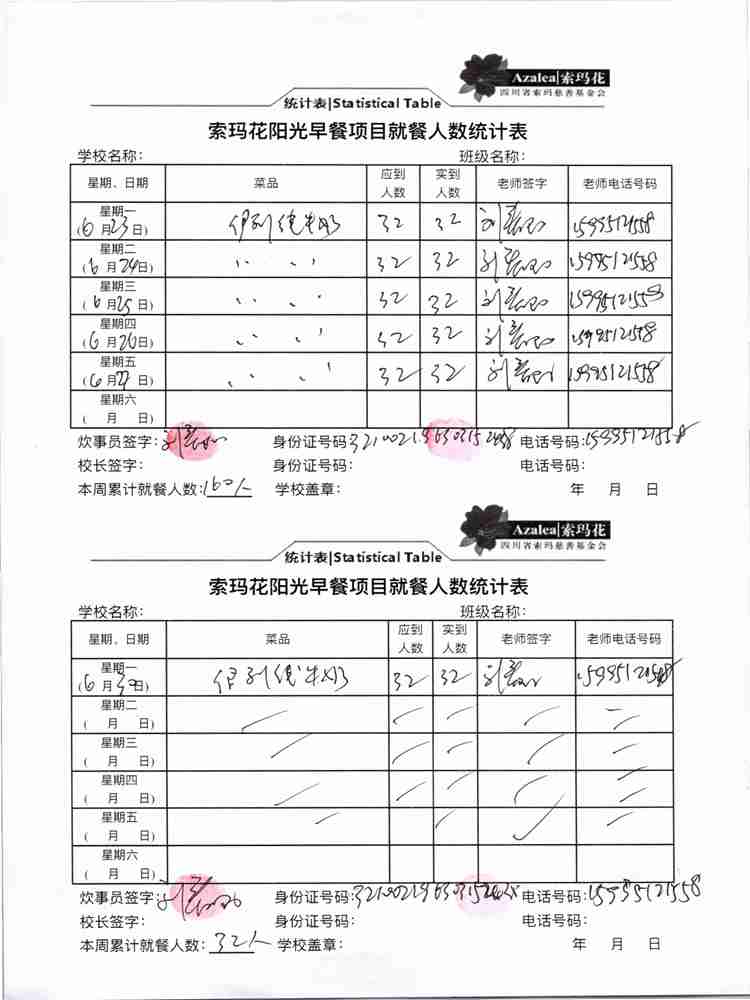 Azalea|索玛花
四川省索玛慈善基金会
统计表|Statistical Table
索玛花阳光早餐项目就餐人数统计表
学校名称: 班级名称:
星期、日期 菜品 应到人数 实到人数 老师签字 老师电话号码
星期一 (6月23日) 伊利纯牛奶 32 32 刘
星期二 (6月24日) 〃 〃 〃 32 32 刘
星期三 (6月25日) 〃 〃 〃 32 32 刘
星期四 (6月26日) 〃 〃 〃 32 32 刘
星期五 (6月27日) 〃 〃 〃 32 32 刘
星期六 ( 月 日)
炊事员签字:刘 身份证号码: 电话号码:
校长签字: 身份证号码: 电话号码:
本周累计就餐人数:160人 学校盖章: 年 月 日
Azalea|索玛花
四川省索玛慈善基金会
统计表|Statistical Table
索玛花阳光早餐项目就餐人数统计表
学校名称: 班级名称:
星期、日期 菜品 应到人数 实到人数 老师签字 老师电话号码
星期一 (6月30日) 伊利纯牛奶 32 32 刘
星期二 ( 月 日)
星期三 ( 月 日)
星期四 ( 月 日)
星期五 ( 月 日)
星期六 ( 月 日)
炊事员签字:刘 身份证号码: 电话号码:
校长签字: 身份证号码: 电话号码:
本周累计就餐人数:32人 学校盖章: 年 月 日